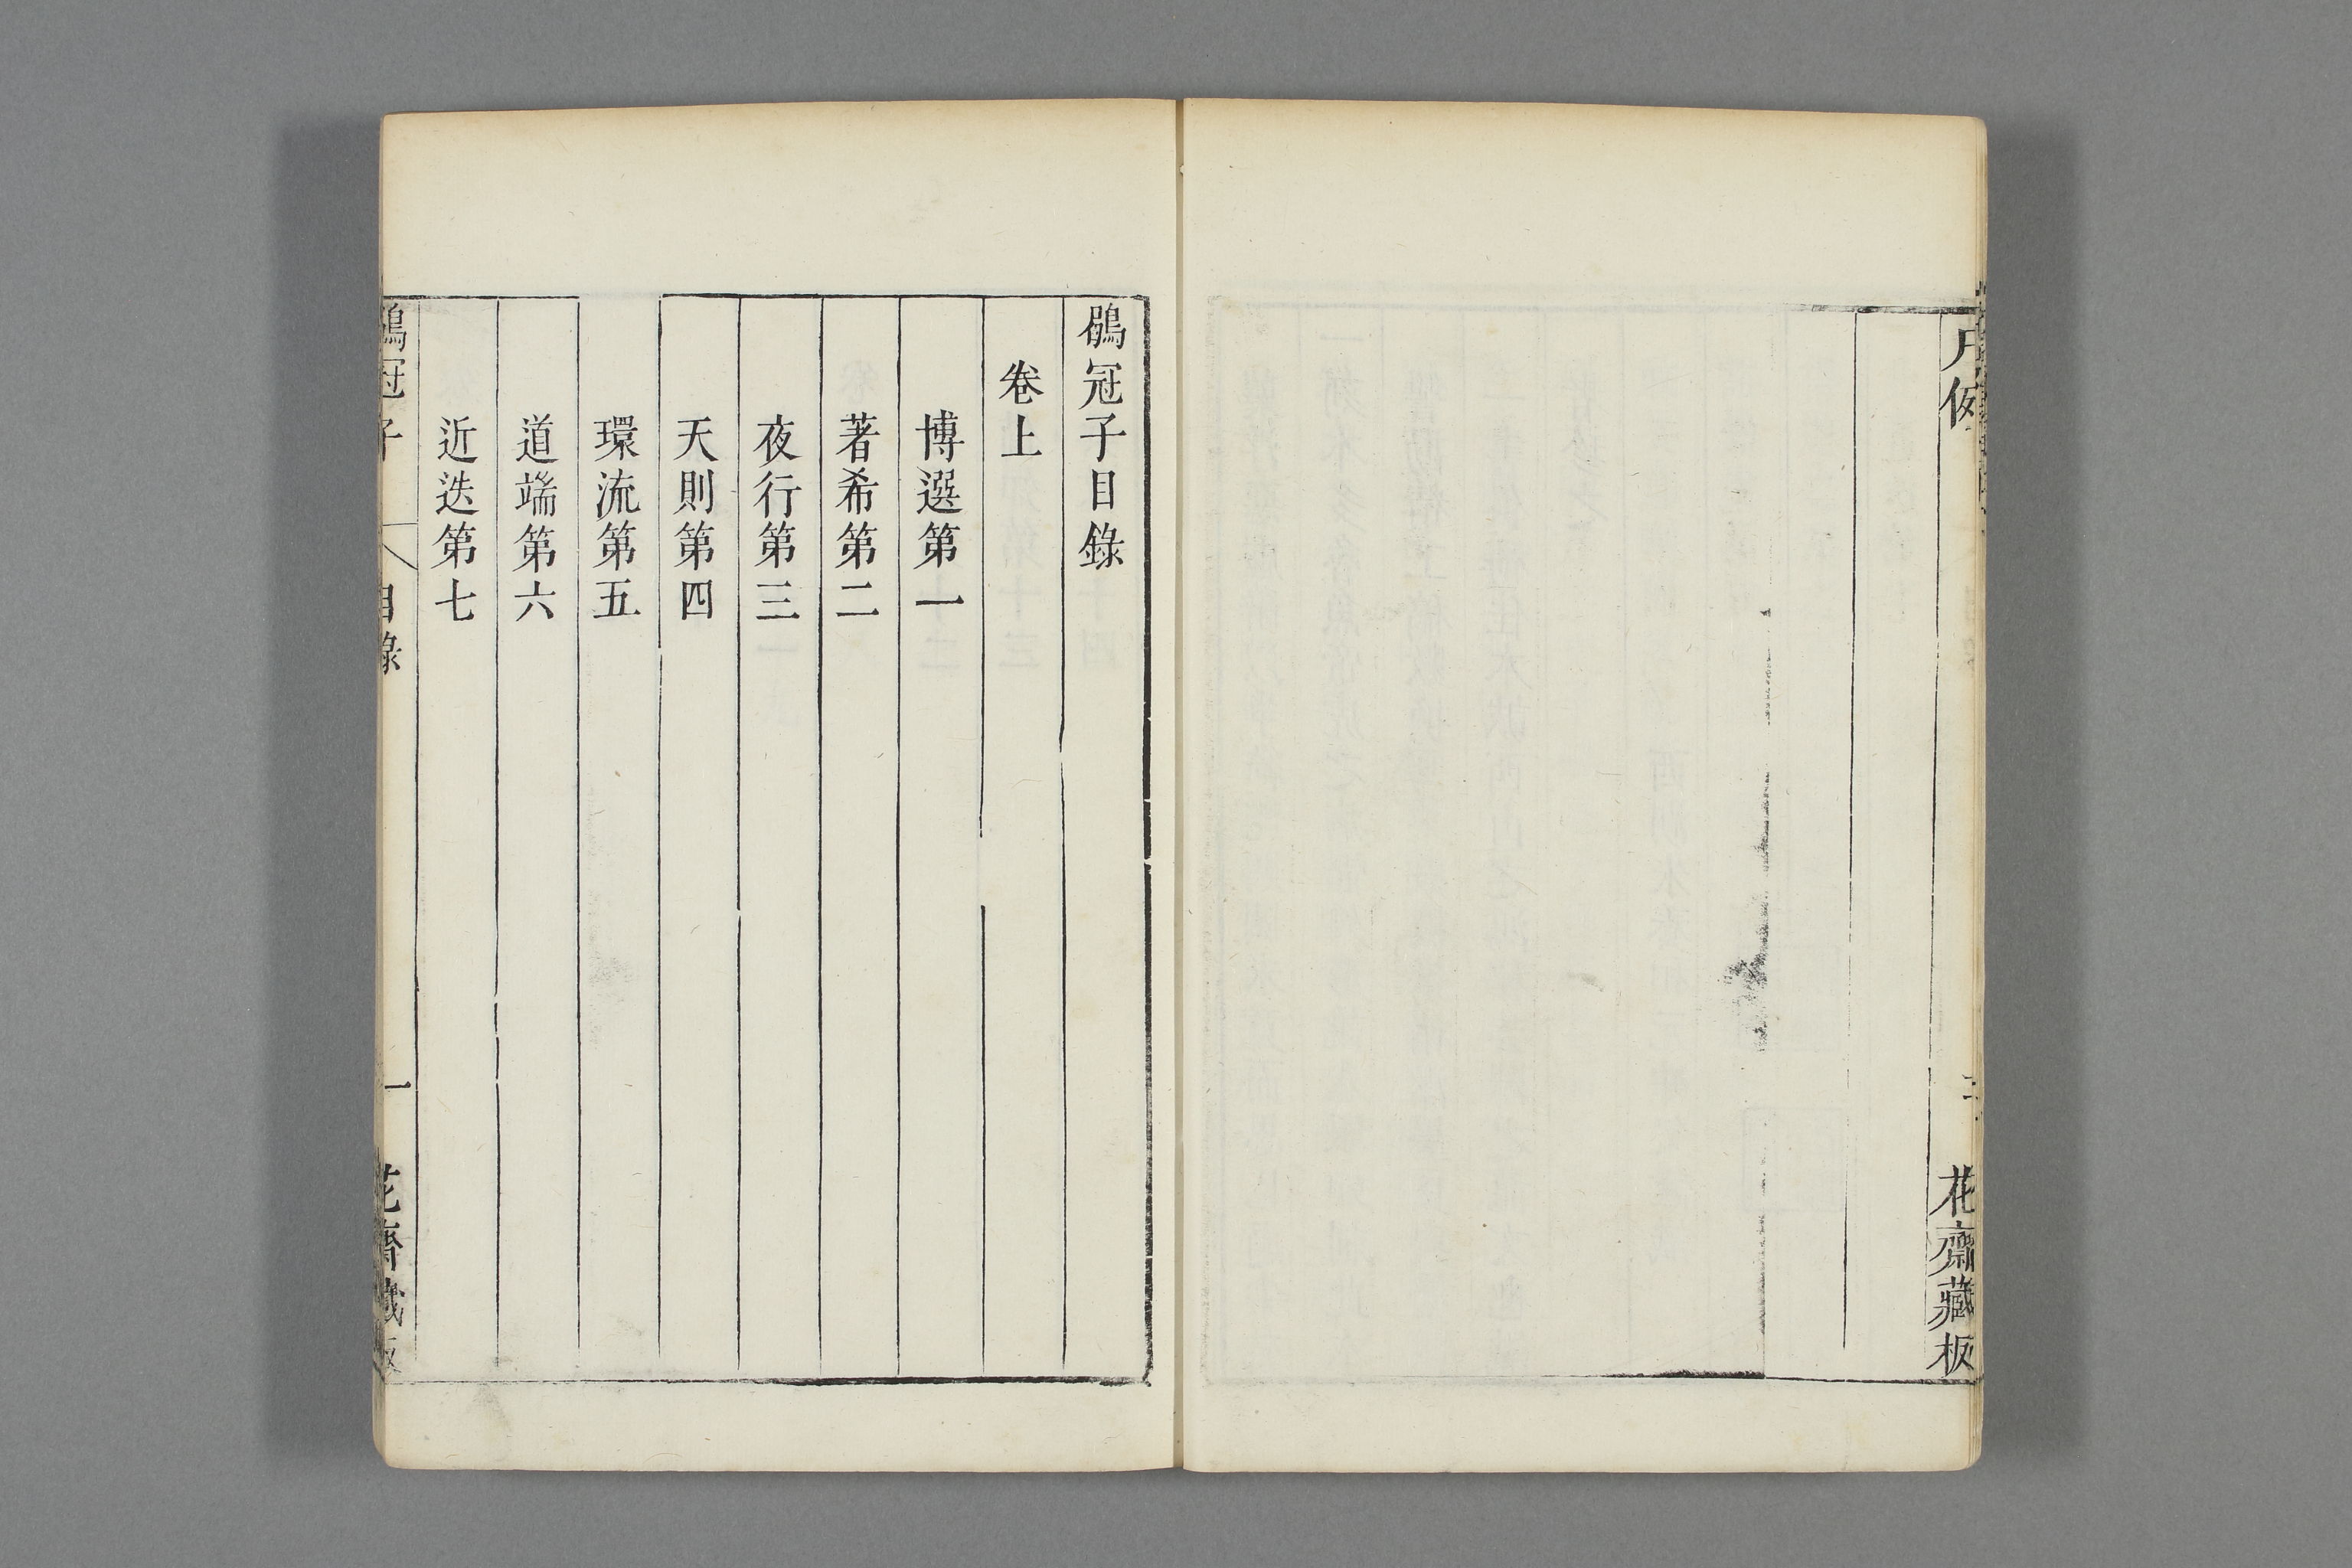 花齋藏板
鶡冠子目錄
卷上
博選第一
著希第二
夜行第三
天則第四
環流第五
道端第六
近迭第七
鶡冠子
目錄
一
花齋藏板